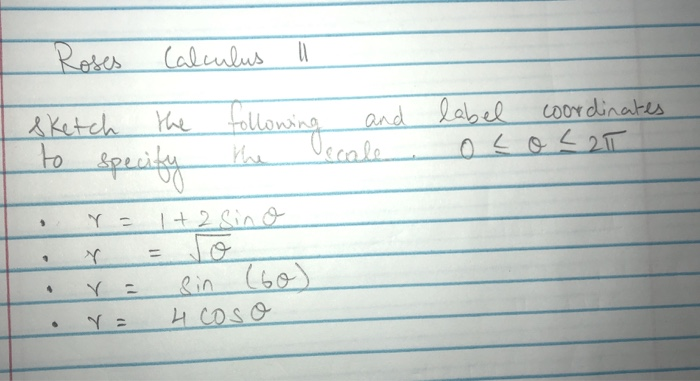 Roses Calculus II
Sketch the following and label coordinates
to specify the scale. 0 ≤ θ ≤ 2π
• r = 1 + 2 Sin θ
• r = √θ
• r = Sin (6θ)
• r = 4 cos θ